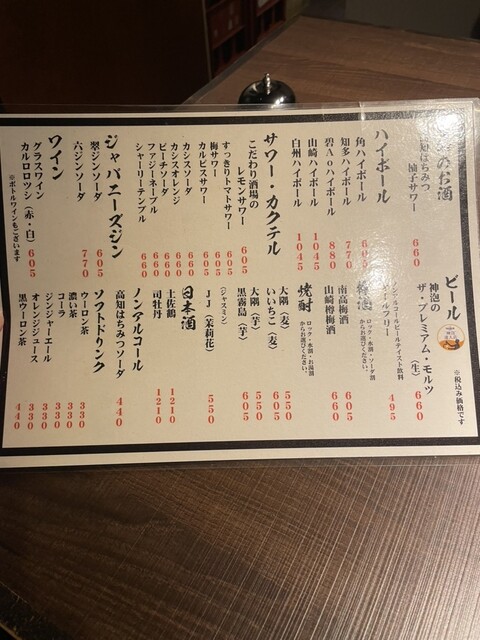 ビール
神泡の
ザ・プレミアム・モルツ(生) 660
ールフリー
ノンアルコールビールテイスト飲料 495
※税込み価格です
のお酒
はちみつ
柚子サワー 660
ハイボール
角ハイボール 605
知多ハイボール 770
碧Aoハイボール 880
山崎ハイボール 1045
白州ハイボール 1045
サワー・カクテル
こだわり酒場の
レモンサワー 605
すっきりトマトサワー 605
梅サワー 605
カルピスサワー 605
カシスソーダ 660
カシスオレンジ 660
ピーチソーダ 660
ファジーネーブル 660
シャーリーテンプル 660
ジャパニーズジン
翠ジンソーダ 605
六ジンソーダ 770
ワイン
グラスワイン
カルロロッシ(赤・白) 605
※ボトルワインもございます
梅酒
ロック・水割・ソーダ割
からお選びください。
南高梅酒 605
山崎樽梅酒 660
焼酎
ロック・水割・お湯割
からお選びください。
大隅(麦) 550
いいちこ(麦) 605
大隅(芋) 550
黒霧島(芋) 605
(ジャスミン)
JJ(茉莉花) 550
日本酒
土佐鶴 1210
司牡丹 1210
ノンアルコール
高知はちみつソーダ 440
ソフトドリンク
ウーロン茶 330
濃い茶 330
コーラ 330
ジンジャーエール 330
オレンジジュース 330
黒ウーロン茶 440